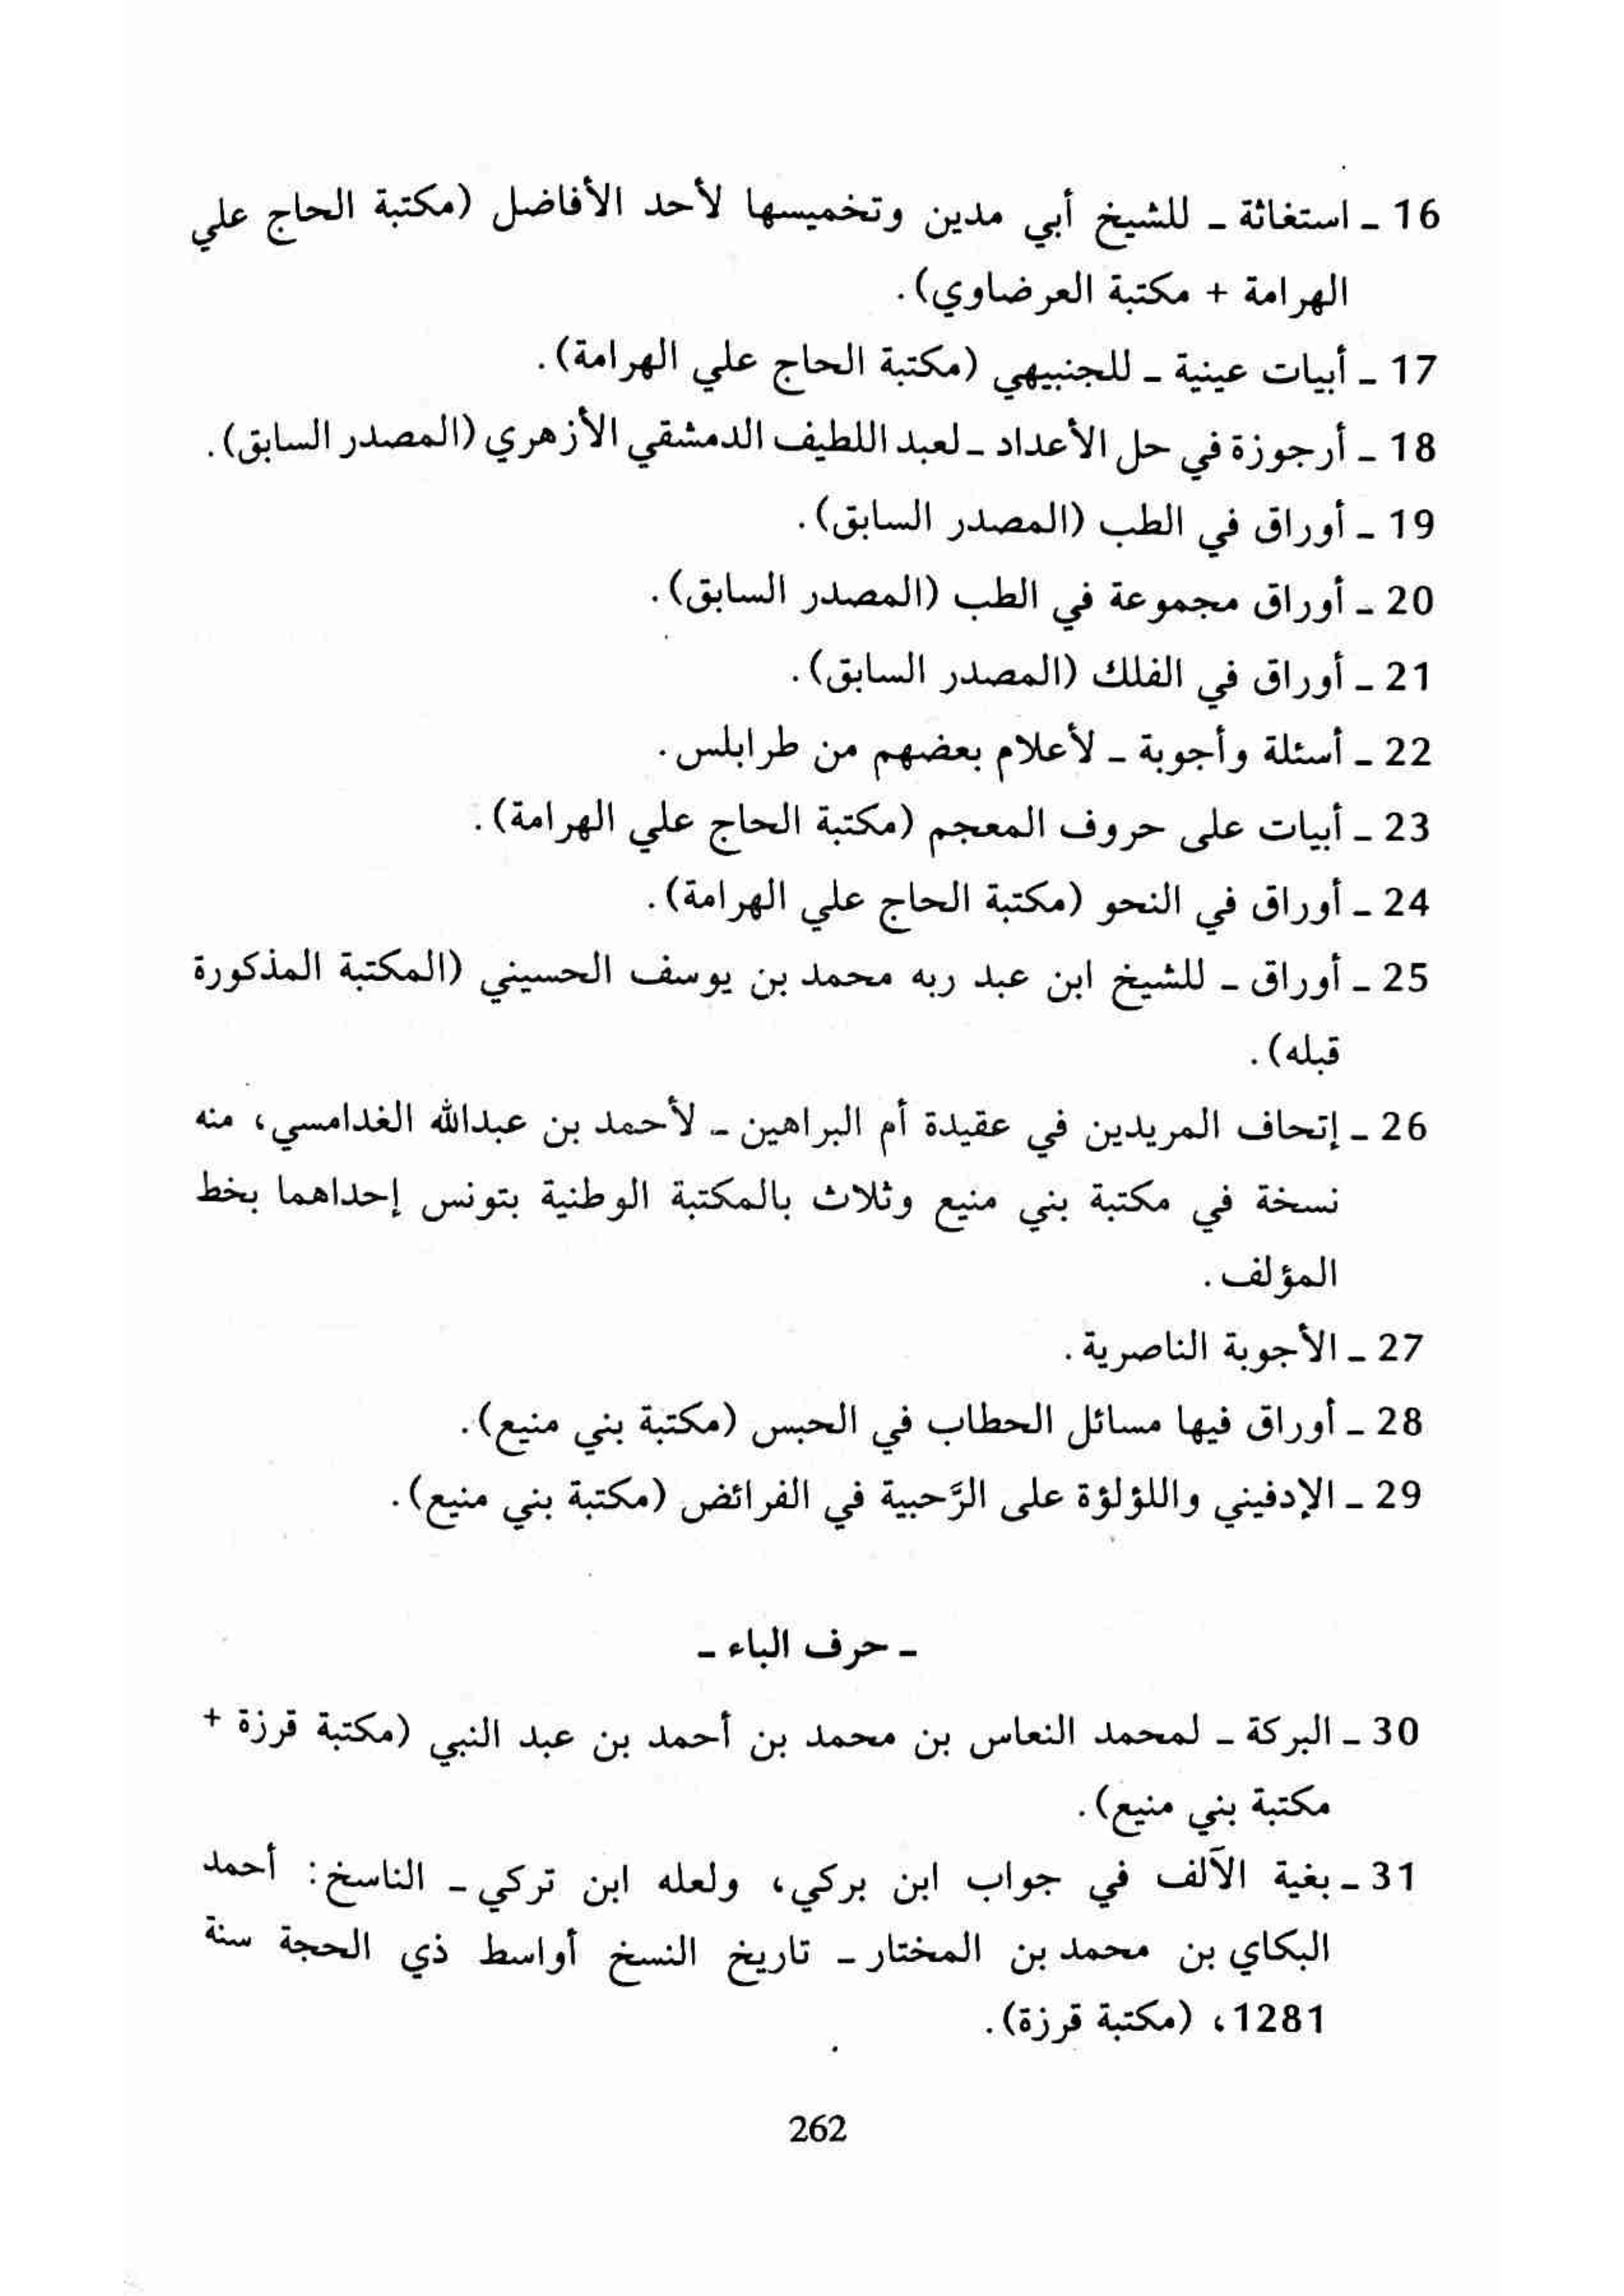 16 ـ استغاثة ـ للشيخ أبي مدين وتخميسها لأحد الأفاضل (مكتبة الحاج علي
الهرامة + مكتبة العرضاوي).
17 ـ أبيات عينية ـ للجنبيهي (مكتبة الحاج علي الهرامة).
18 ـ أرجوزة في حل الأعداد ـ لعبد اللطيف الدمشقي الأزهري (المصدر السابق).
19 ـ أوراق في الطب (المصدر السابق).
20 ـ أوراق مجموعة في الطب (المصدر السابق).
21 ـ أوراق في الفلك (المصدر السابق).
22 ـ أسئلة وأجوبة ـ لأعلام بعضهم من طرابلس.
23 ـ أبيات على حروف المعجم (مكتبة الحاج علي الهرامة).
24 ـ أوراق في النحو (مكتبة الحاج علي الهرامة).
25 ـ أوراق ـ للشيخ ابن عبد ربه محمد بن يوسف الحسيني (المكتبة المذكورة
قبله).
26 ـ إتحاف المريدين في عقيدة أم البراهين ـ لأحمد بن عبدالله الغدامسي، منه
نسخة في مكتبة بني منيع وثلاث بالمكتبة الوطنية بتونس إحداهما بخط
المؤلف.
27 ـ الأجوبة الناصرية.
28 ـ أوراق فيها مسائل الحطاب في الحبس (مكتبة بني منيع).
29 ـ الإدفيني واللؤلؤة على الرَّحبية في الفرائض (مكتبة بني منيع).
ـ حرف الباء ـ
30 ـ البركة ـ لمحمد النعاس بن محمد بن أحمد بن عبد النبي (مكتبة قرزة +
مكتبة بني منيع).
31 ـ بغية الآلف في جواب ابن بركي، ولعله ابن تركي ـ الناسخ: أحمد
البكاي بن محمد بن المختار ـ تاريخ النسخ أواسط ذي الحجة سنة
1281، (مكتبة قرزة).
262